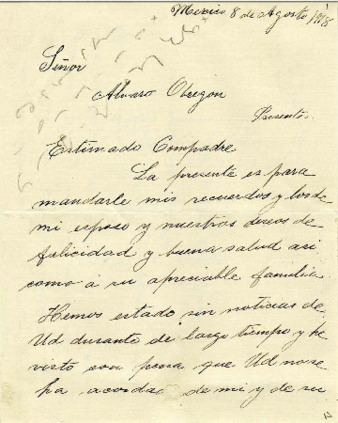 Mexico 8 de Agosto 1918
Señor
Alvaro Obregon
Presente.
Estimado Compadre
La presente es para
mandarle mis recuerdos y los de
mi esposo y nuestros deseos de
felicidad y buena salud asi
como á su apreciable familia
Hemos estado sin noticias de
Ud durante de largo tiempo y he
visto con pena que Ud no se
ha acordado de mi y de su